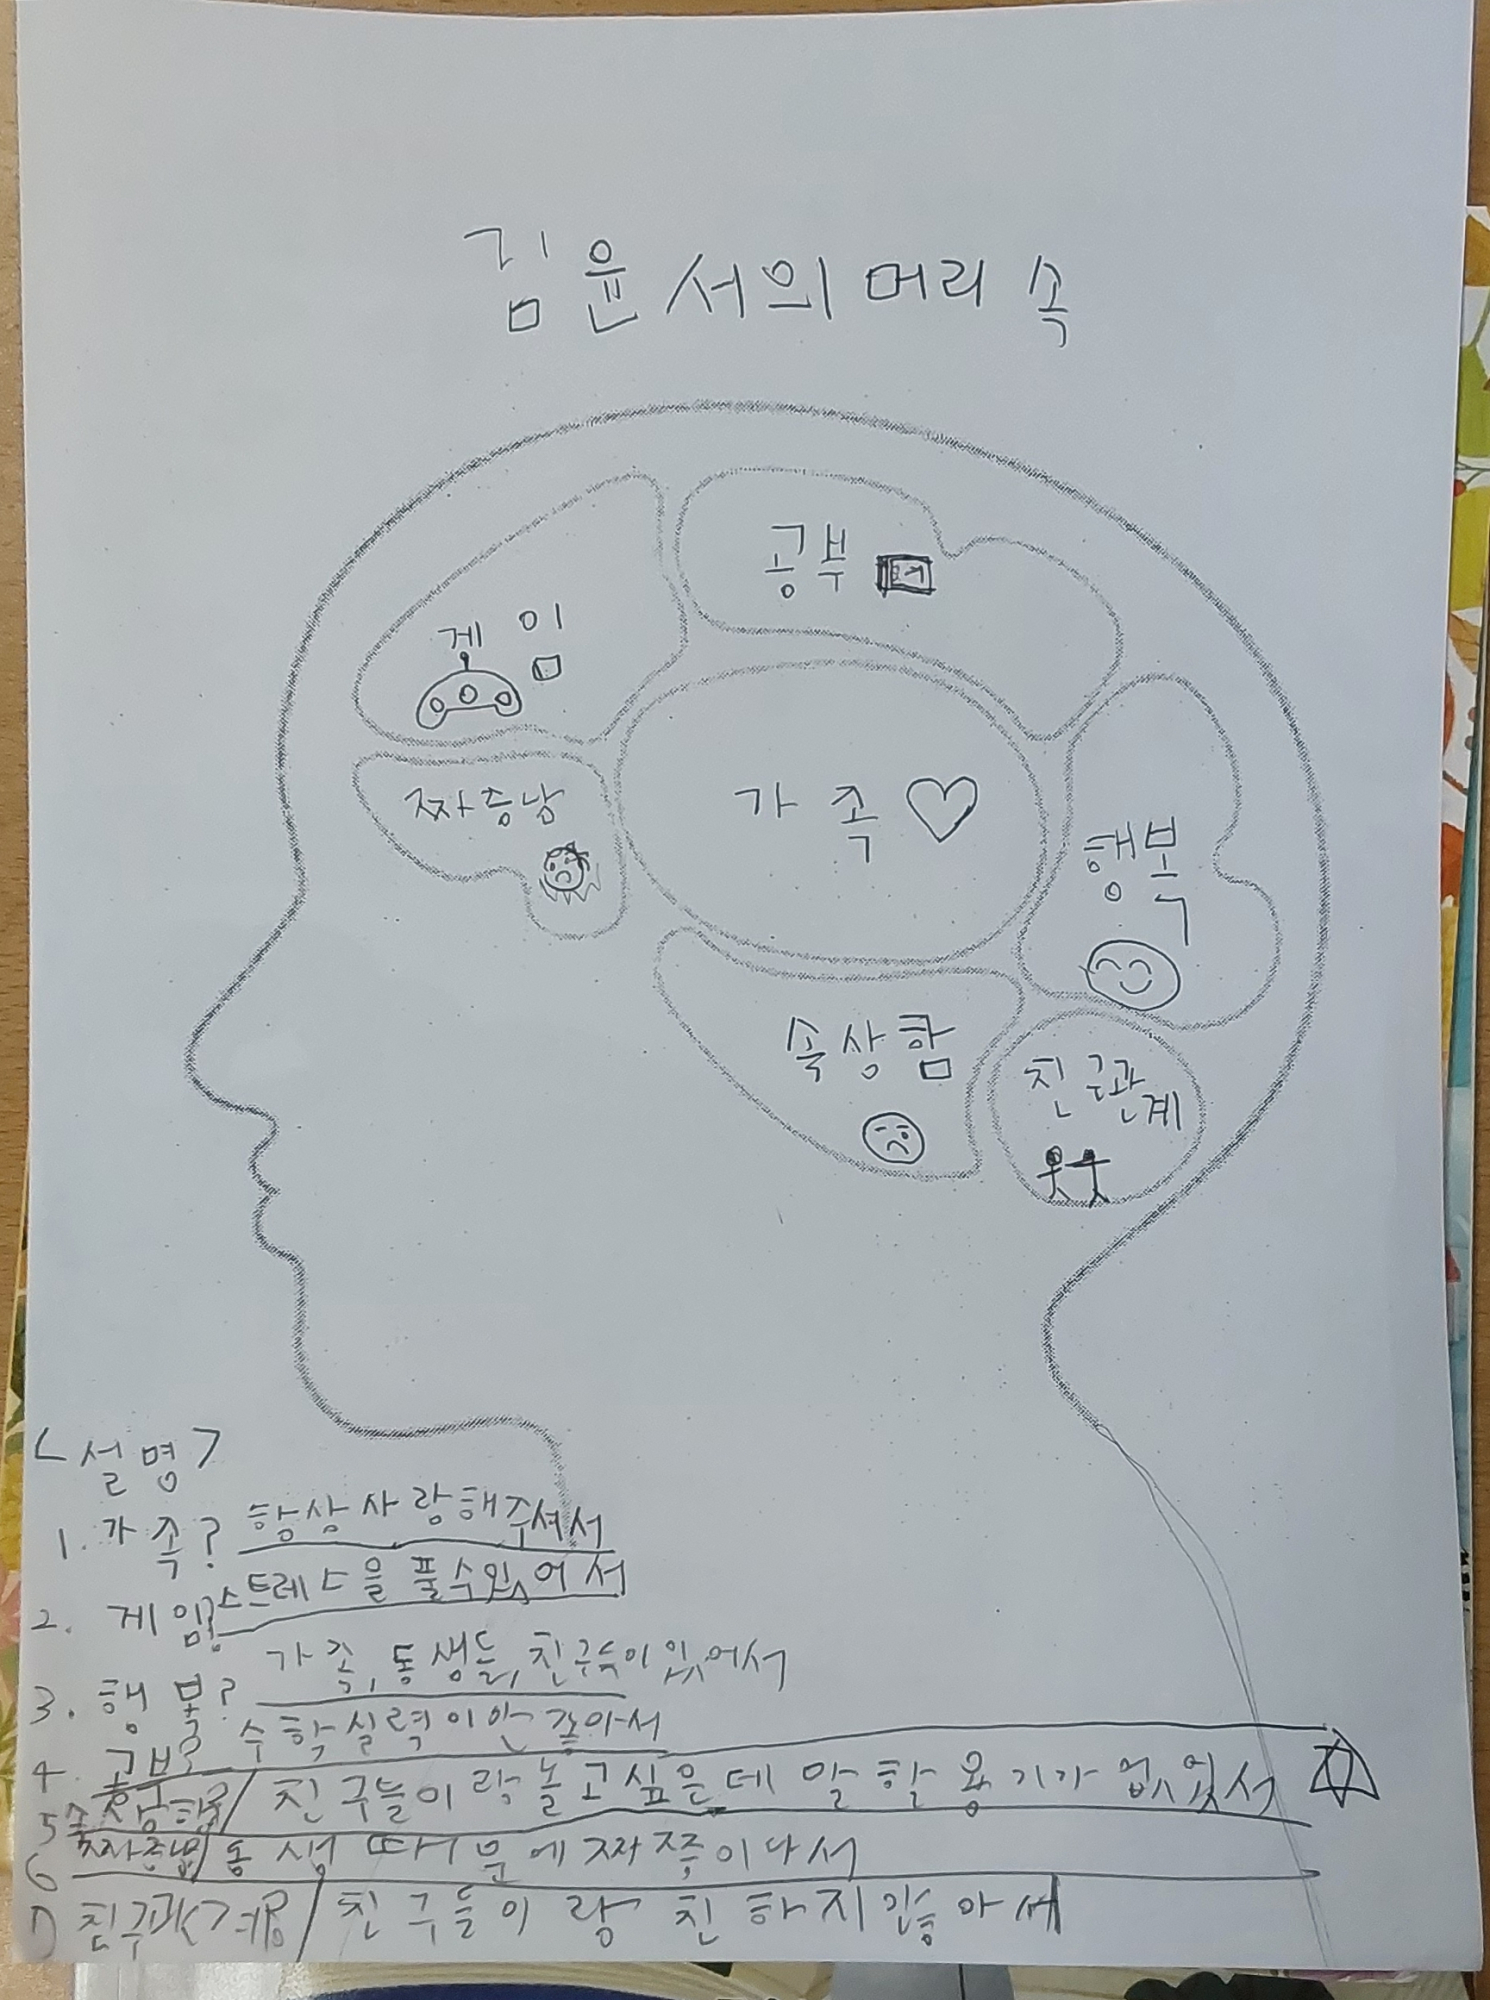 김윤서의 머리 속
공부
게임
가족
짜증남
행복
속상함
친구관계
<설명>
1. 가족? 항상 사랑해주셔서
2. 게임? 스트레스을 풀수있어서
3. 행복? 가족, 동생들, 친구들이 있어서
4. 공부? 수학실력이 안 좋아서
5 속상함?/ 친구들이랑 놀고싶은데 말할 용기가 없었서
6 짜증남/ 동생 때문에 짜증이나서
7 친구관계?/ 친구들이랑 친하지않아서